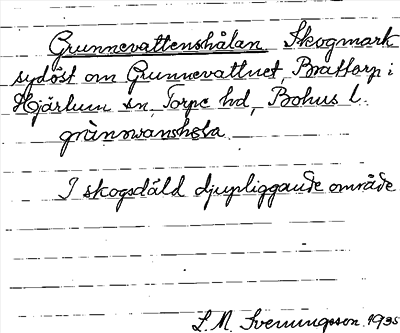 Grunnevattenshålan. Skogmark
sydöst om Grunnevattnet, Brattorp i
Hjärtum sn, Torpe hd, Bohus l.
I skogsdäld djupliggande område
L. M. Svenungsson. 1935